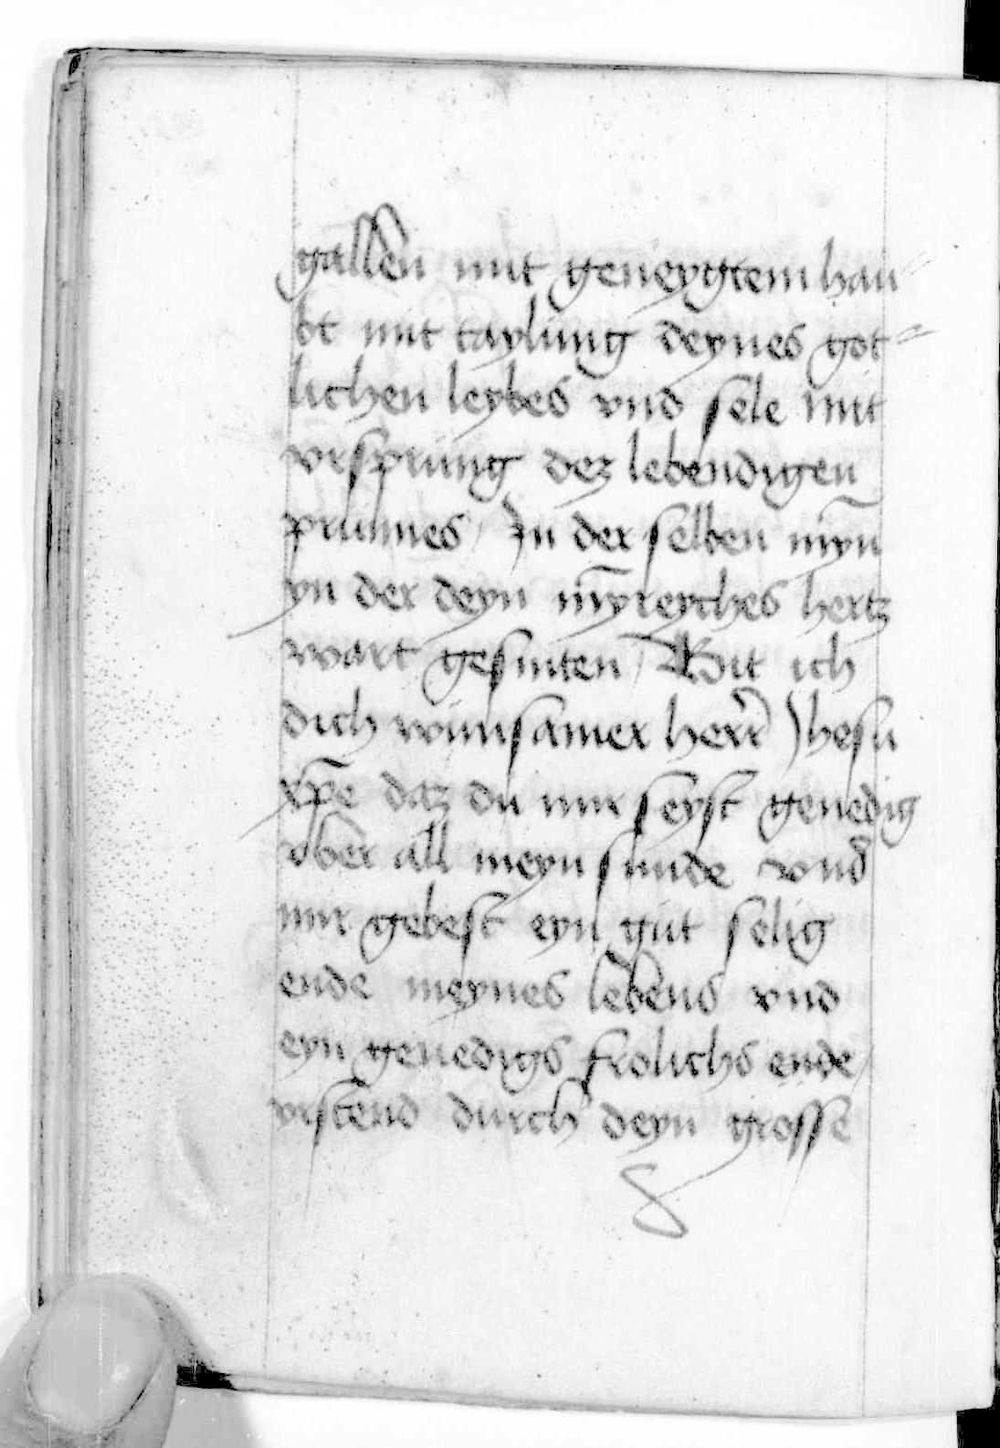 gallen mit geneygtem hau-
bt mit taylung deynes got-
lichen leybes vnd sele mit
vrsprung dez lebendigen
prunnes / In der selben myn̄
yn der deyn m̄yreyches hertz
wart gesniten / Bit ich
dich wunsamer herr Jhesu
xp̄e daz du mir seyst genedig
vber all meyn sunde vnd
mir gebest eyn gut selig
ende meynes lebens vnd
eyn genedigs frolichs ende /
vrstend durch deyn grosse